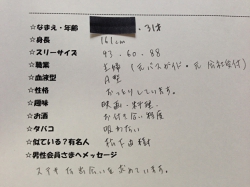 ☆なまえ・年齢 31才
☆身長 161cm
☆スリーサイズ 93.60.88
☆職業 主婦(元バスガイド・元会社受付)
☆血液型 A型
☆性格 おっとりしています。
☆趣味 映画・料理
☆お酒 お付き合い程度
☆タバコ 吸わない
☆似ている?有名人 松下由樹
☆男性会員さまへメッセージ
ステキな出会いを求めています。